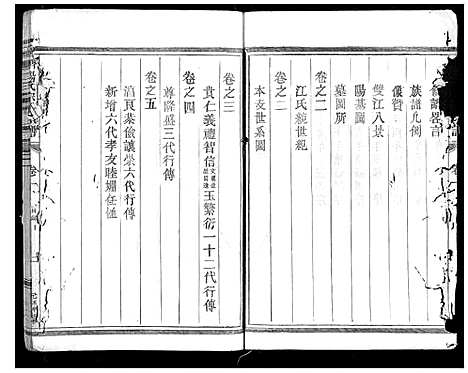 族譜凡例
像贊
雙江八景
陽基圖
墓圖所
卷之二
江氏統世紀
卷之二
本支世系圖
卷之三
貴仁義禮智信玉繁衍一十二代行傳
卷之四
尊隆盛三代行傳
卷之五
儉讓崇六代行傳
新增六代孝友睦婣任恤